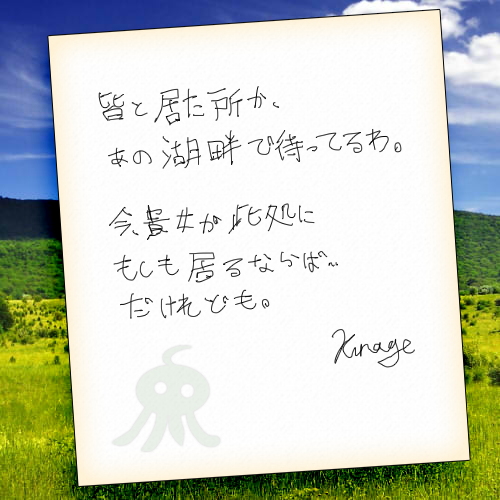 皆と居た所か、
あの湖畔で待ってるわ。
今、貴女が此処に
もしも居るならば…
だけれども。
Kinage